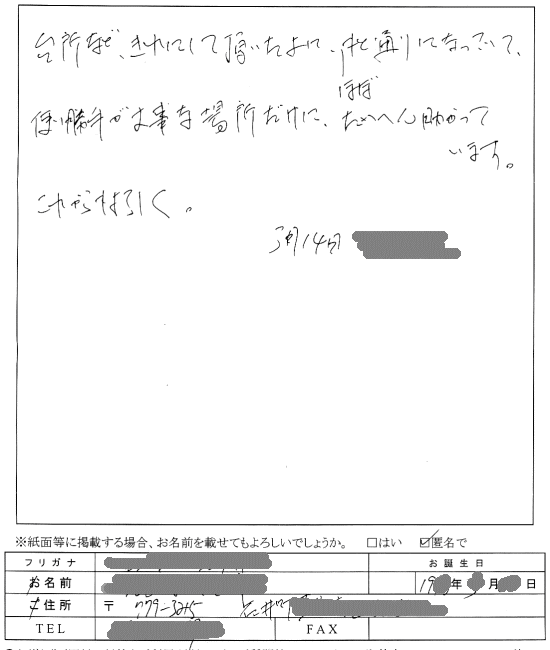 台所など、きれいにして頂いた上に、元通りになっていて、
ほぼ
使い勝手が大事な場所だけに、たいへん助かって
います。
これから
3月14日
※紙面等に掲載する場合、お名前を載せてもよろしいでしょうか。 □はい ☑匿名で
フリガナ お誕生日
お名前 19 年 月 日
ご住所 〒 079-
TEL FAX